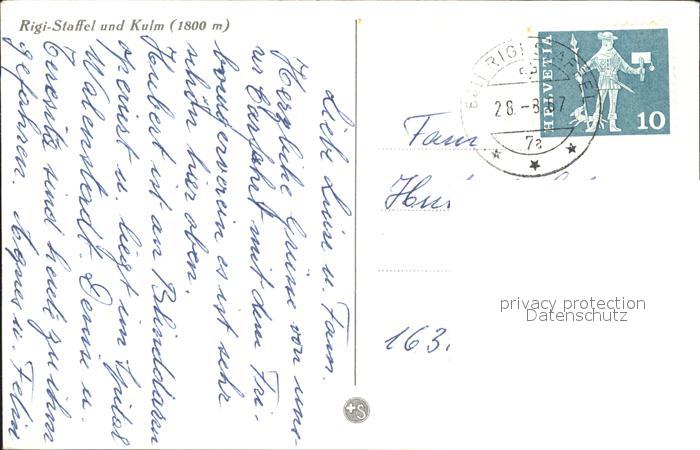 Rigi-Staffel und Kulm (1800 m)
Liebe Linin u. Fam.
Herzliche Grüsse von uns-
rer Carfahrt mit dem Fri-
tourverein es ist sehr
schön hier oben.
Hubert ist am Blinddarm
operiert u. liegt im Spital
Walenstadt. Denise u.
sind heute zu ihm
gefahren. Agnes u. Felix
HELVETIA
10
RIGI STAFFEL
28.-8.67
7a
Fam
163.
privacy protection
Datenschutz
+S